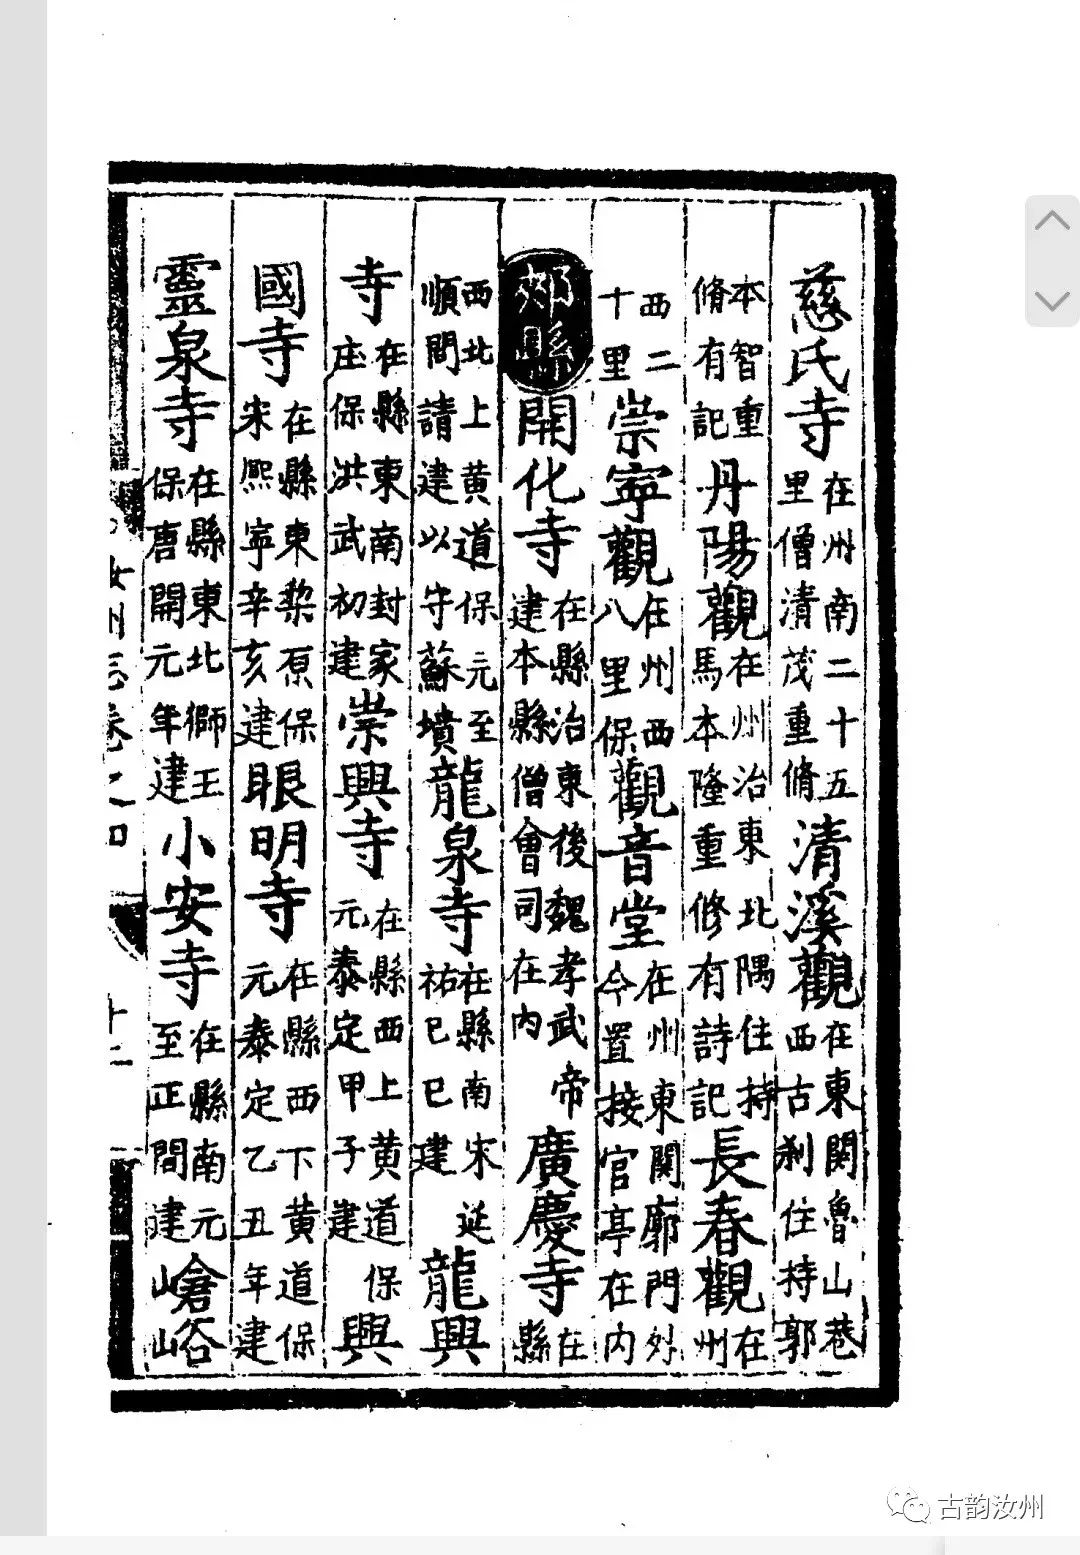 慈氏寺在州南二十五里僧清茂重脩清溪觀在東關魯山巷西古刹住持郭
本智重脩有記丹陽觀在州治東北隅住持馬本隆重修有詩記長春觀在州
西二十里崇寧觀在州西八里保觀音堂在州東關廓門外今置接官亭在内
郟縣開化寺在縣治東後魏孝武帝建本縣僧會司在内廣慶寺在縣
西北上黄道保元至順間請建以守蘇墳龍泉寺在縣南宋延祐己巳建龍興
寺在縣東南封家庄保洪武初建崇興寺在縣西上黄道保元泰定甲子建興
國寺在縣東棃原保宋熙寧辛亥建眼明寺在縣西下黄道保元泰定乙丑年建
靈泉寺在縣東北獅王保唐開元年建小安寺在縣南元至正間建嵢峪
汝州志卷之四 十二
古韵汝州